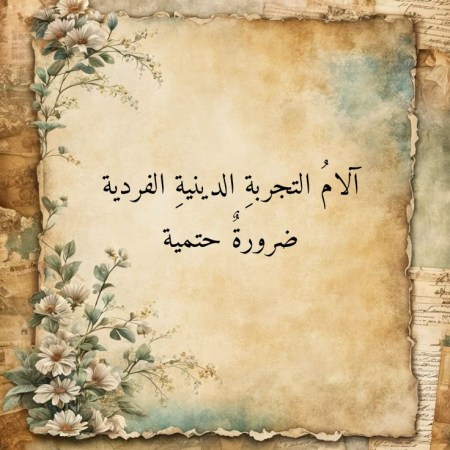 آلامُ التجربةِ الدينيةِ الفردية
ضرورةٌ حتمية